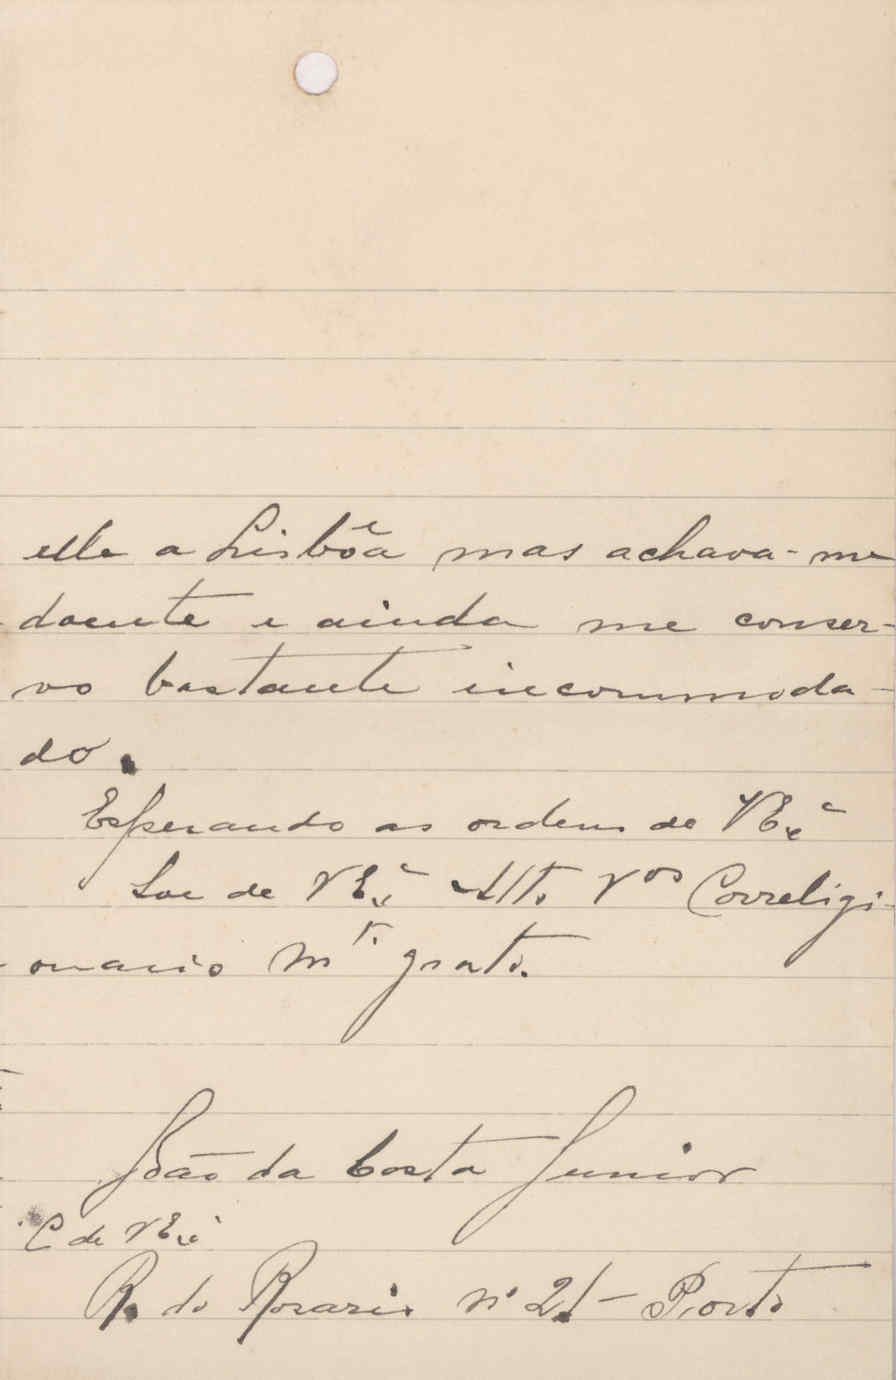 elle a Lisbôa mas achava-me
doente e ainda me conser-
vo bastante incommoda-
do.
Esperando as ordens de V Exª
Sou de V Exª Attº Vºr Correligi-
onario Mtº grato.
João da Costa Junior
C de V Exª
R. do Rosario nº 21 - Porto